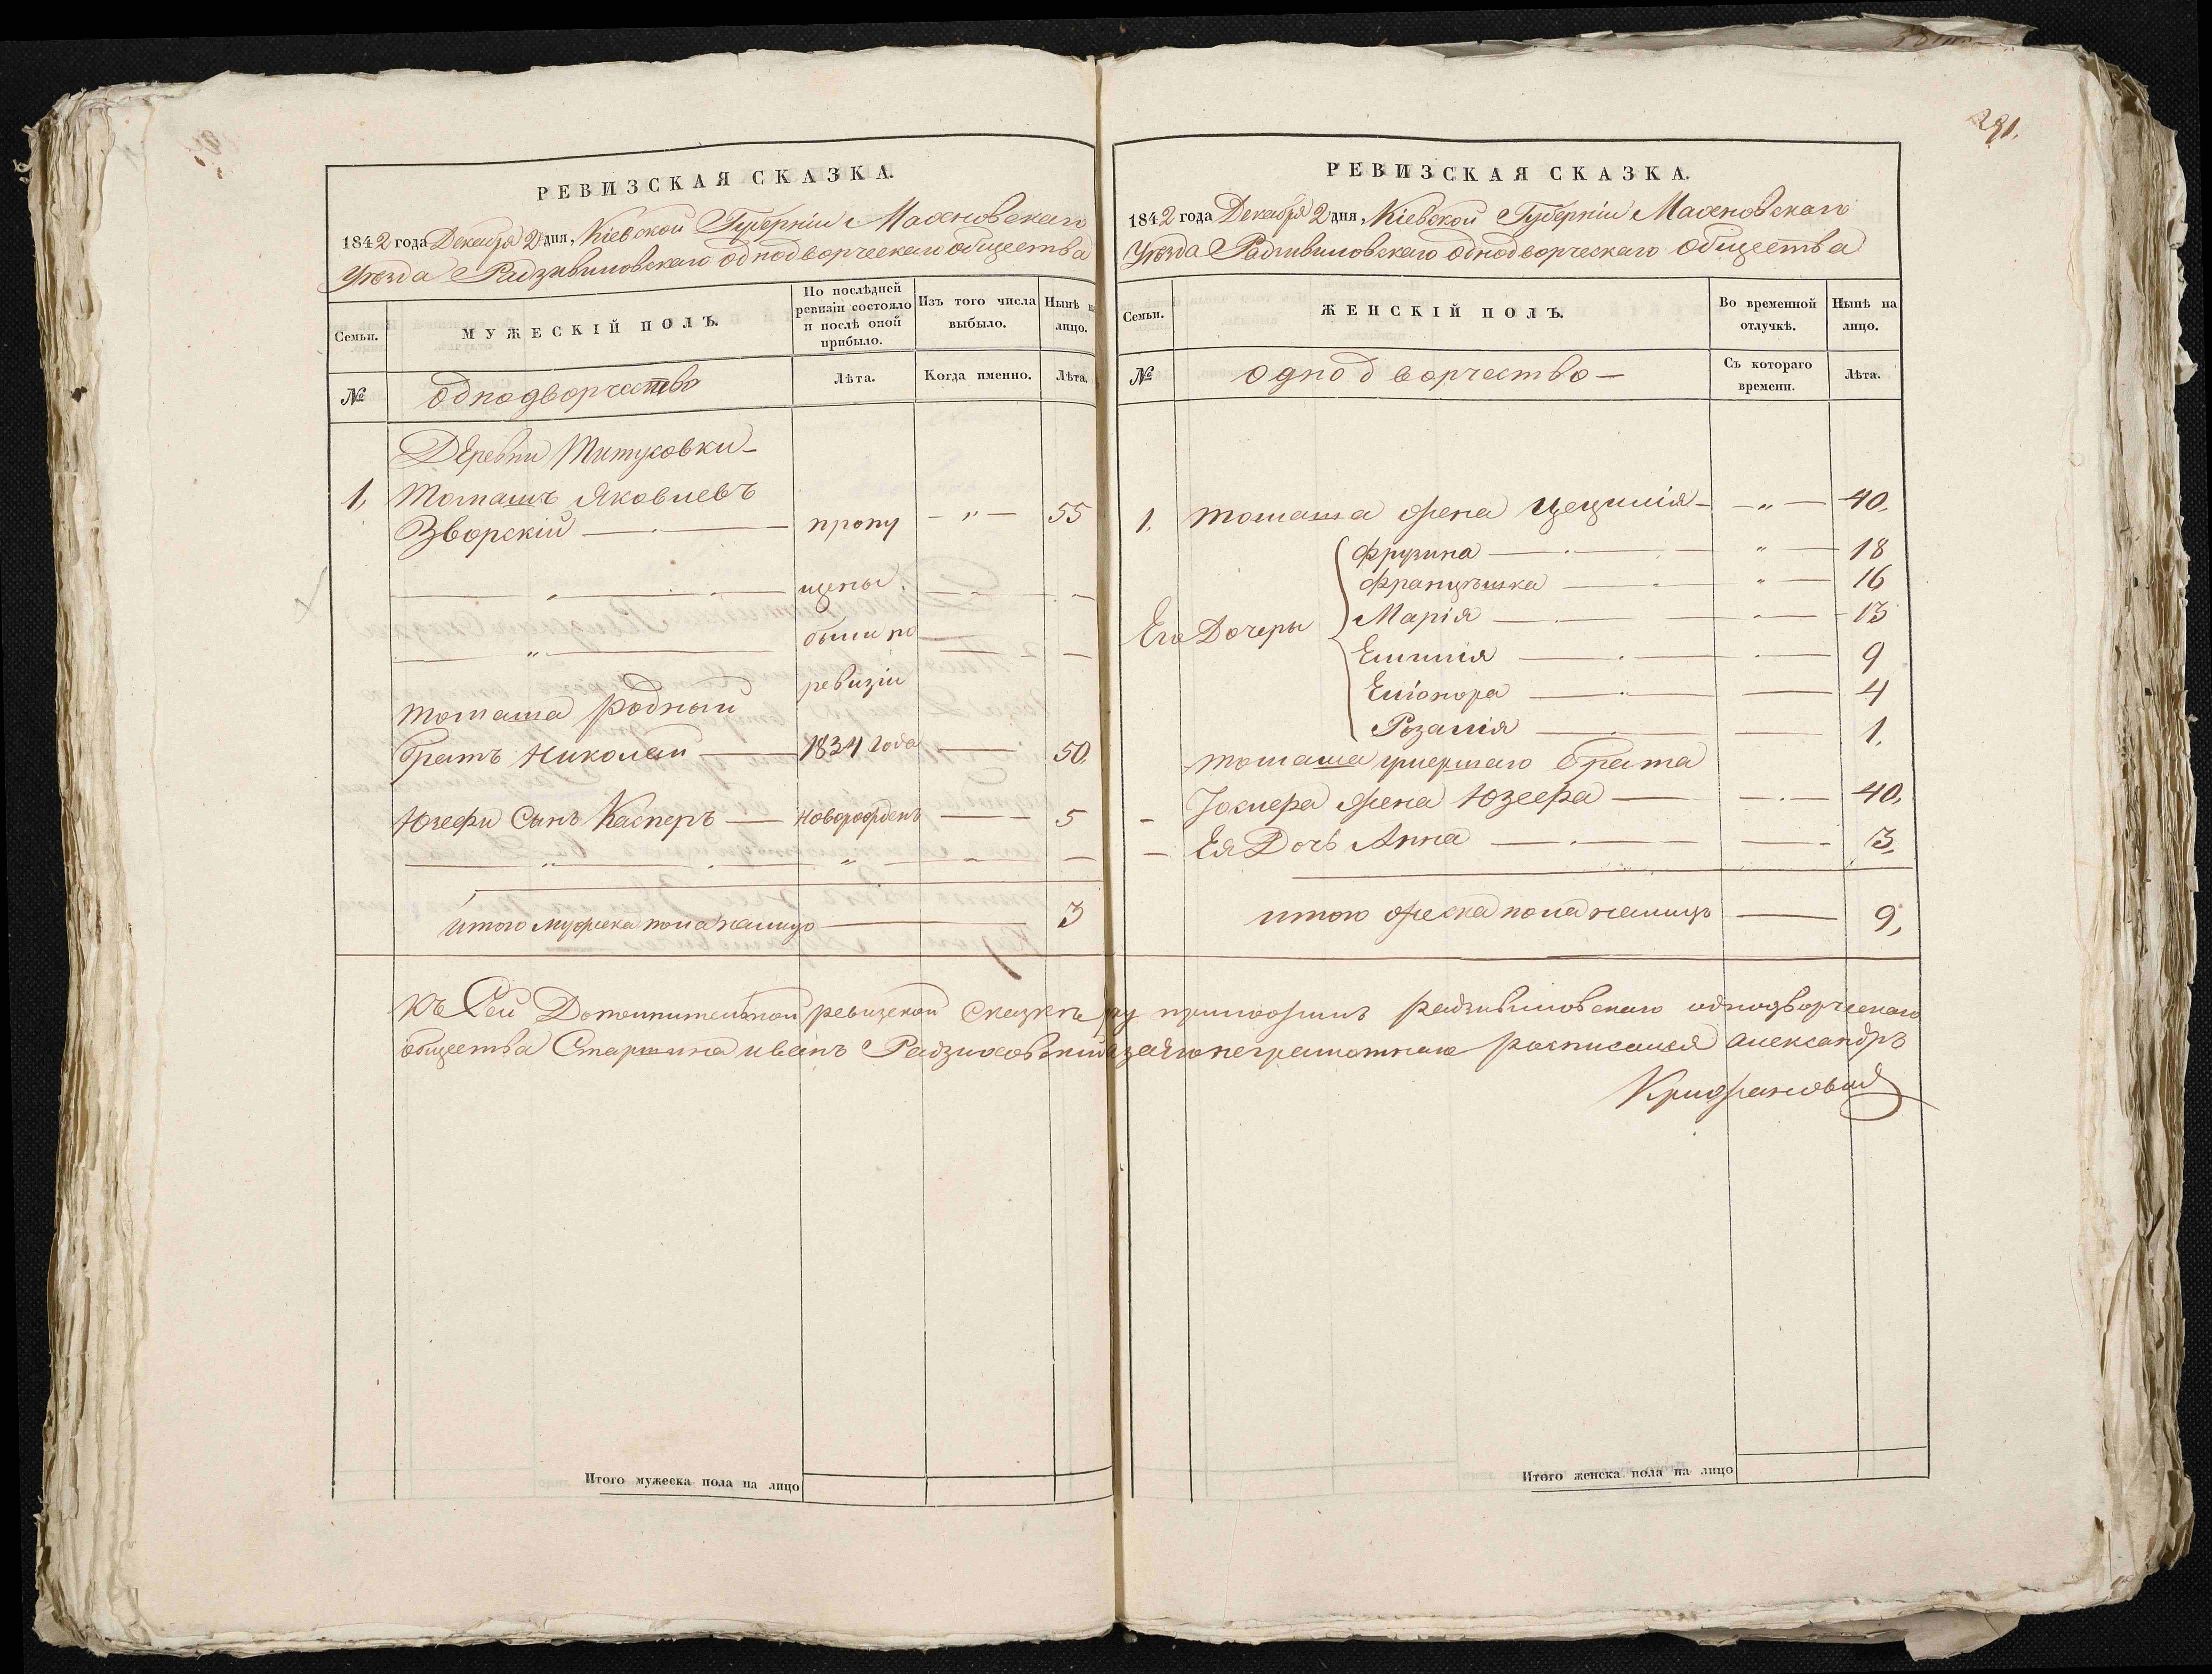 РЕВИЗСКАЯ СКАЗКА.
1842 года Декабря 2 дня, Кіевской Губерніи Махновскаго
Уѣзда Радзивиловскаго однодворческаго общества
Семьи.
МУЖЕСКІЙ ПОЛЪ.
По послѣдней ревизіи состояло и послѣ оной прибыло.
Изъ того числа выбыло.
Нынѣ на лицо.
№
однодворчество
Лѣта.
Когда именно.
Лѣта.
Деревни Титусовки
1, Томашъ Яковлевъ
Зворскій — пропу — " — 55
щены
были по
ревизіи
Томаша родный
братъ Николай — 1834 года — 50.
Юзефи Сынъ Касперъ — новорожденъ — 5
итого мужеска пола налицо — 3
291.
РЕВИЗСКАЯ СКАЗКА.
1842 года Декабря 2 дня, Кіевской Губерніи Махновскаго
Уѣзда Радзивиловскаго однодворческаго общества
Семьи.
ЖЕНСКІЙ ПОЛЪ.
Во временной отлучкѣ.
Нынѣ на лицо.
№
однодворчество —
Съ котораго времени.
Лѣта.
1. Томаша жена Цецилія — " — 40.
Его Дочеры
Фрузина — " — 18
Францѣшка — " — 16
Марія — 13
Емилія — 9
Еліонора — 4
Розалія — 1.
Томаша умершаго брата
жена Юзефа — 40,
— Ея Дочь Анна — 3,
итого женска пола налицо — 9,
Къ Сей Дополнительной ревизской сказкѣ руку приложилъ Радзивиловскаго однодворческаго
общества Старшина иванъ Радзиховскій а за его неграмотнаго росписался Александръ
Крижановскій
Итого мужеска пола на лицо
Итого женска пола на лицо